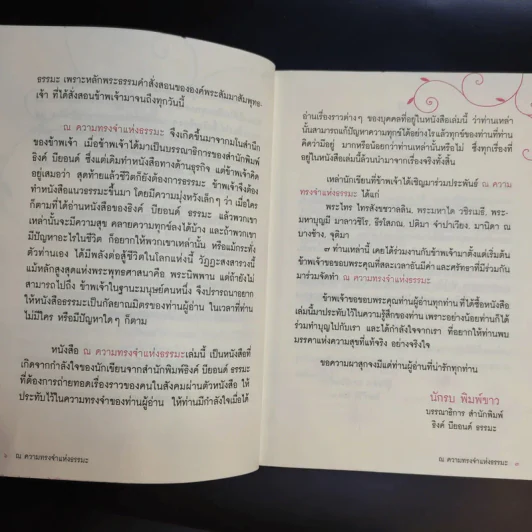 ธรรมะ เพราะหลักพระธรรมคำสั่งสอนขององค์พระสัมมาสัมพุทธ-
เจ้า ที่ได้สั่งสอนข้าพเจ้ามาจนถึงทุกวันนี้
ณ ความทรงจำแห่งธรรมะ จึงเกิดขึ้นมาจากมโนสำนึก
ของข้าพเจ้า เมื่อข้าพเจ้าได้มาเป็นบรรณาธิการของสำนักพิมพ์
ธิงค์ บียอนด์ ซึ่งแต่เดิมทำหนังสือทางด้านธุรกิจ แต่ข้าพเจ้าคิด
อยู่เสมอว่า สุดท้ายแล้วชีวิตก็ยังต้องการธรรมะ ข้าพเจ้าจึงต้อง
ทำหนังสือแนวธรรมะขึ้นมา โดยมีความมุ่งหวังเล็กๆ ว่า เมื่อใคร
ก็ตามที่ได้อ่านหนังสือของธิงค์ บียอนด์ ธรรมะ แล้วพวกเขา
เหล่านั้นจะมีความสุข คลายความทุกข์ลงได้บ้าง และถ้าพวกเขา
มีปัญหาอะไรในชีวิต ก็อยากให้พวกเขาเหล่านั้น หรือแม้กระทั่ง
ตัวท่านเอง ได้มีพลังต่อสู้ชีวิตในโลกแห่งนี้ วัฏฏะสงสารวงนี้
แม้หลักสูงสุดแห่งพระพุทธศาสนาคือ พระนิพพาน แต่ถ้ายังไม่
สามารถไปถึง ข้าพเจ้าในฐานะมนุษย์คนหนึ่ง จึงปรารถนาอยาก
ให้หนังสือธรรมะเป็นกัลยาณมิตรของท่านผู้อ่าน ในเวลาที่ท่าน
ไม่มีใคร หรือมีปัญหาใดๆ ก็ตาม
หนังสือ ณ ความทรงจำแห่งธรรมะเล่มนี้ เป็นหนังสือที่
เกิดจากกำลังใจของนักเขียนจากสำนักพิมพ์ธิงค์ บียอนด์ ธรรมะ
ที่ต้องการถ่ายทอดเรื่องราวของคนในสังคมผ่านตัวหนังสือ ให้
ประทับไว้ในความทรงจำของท่านผู้อ่าน ให้ท่านมีกำลังใจเมื่อได้
ณ ความทรงจำแห่งธรรมะ
อ่านเรื่องราวต่างๆ ของบุคคลที่อยู่ในหนังสือเล่มนี้ ว่าท่านเหล่า
นั้นสามารถแก้ปัญหาความทุกข์ได้อย่างไรแล้วทุกข์ของท่านที่ท่าน
คิดว่ามีอยู่ มากหรือน้อยกว่าท่านเหล่านั้นหรือไม่ ซึ่งทุกเรื่องที่
อยู่ในหนังสือเล่มนี้ล้วนนำมาจากเรื่องจริงทั้งสิ้น
เหล่านักเขียนที่ข้าพเจ้าได้เชิญมาร่วมประพันธ์ ณ ความ
ทรงจำแห่งธรรมะ ได้แก่
พระไทร ไทรสังขชวาลลิน, พระมหาใด วชิรเมธี, พระ-
มหาบุญมี มาลาวชิโร, ธีรโสภณ, ปติมา จำปาเวียง, มานิดา ณ
บางช้าง, จุติมา
๗ ท่านเหล่านี้ เคยได้ร่วมงานกับข้าพเจ้ามาตั้งแต่เริ่มต้น
ข้าพเจ้าขอขอบพระคุณที่สละเวลาอันมีค่า และศรัทธาที่มีร่วมกัน
มาร่วมจัดทำ ณ ความทรงจำแห่งธรรมะ
ข้าพเจ้าขอขอบพระคุณท่านผู้อ่านทุกท่าน ที่ได้ซื้อหนังสือ
เล่มนี้มาประทับไว้ในความรู้สึกของท่าน เพราะอย่างน้อยท่านก็ได้
ร่วมทำบุญไปกับเรา และได้กำลังใจจากเรา ที่อยากให้ท่านพบ
มรรคาแห่งความสุขที่แท้จริง อย่างจริงใจ
ขอความผาสุกจงมีแด่ท่านผู้อ่านที่น่ารักทุกท่าน
นักรบ พิมพ์ขาว
บรรณาธิการ สำนักพิมพ์
ธิงค์ บียอนด์ ธรรมะ
ณ ความทรงจำแห่งธรรมะ